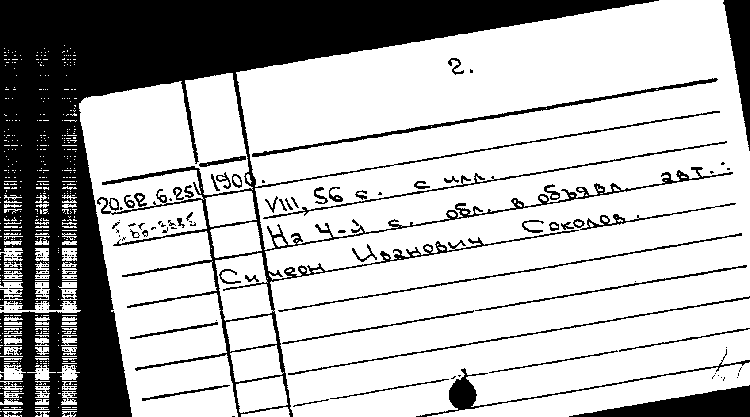 2.
20.62.6.251 1900.
VIII, 56 с. с илл.
На 4-й с. обл. в объявл. авт.:
Симеон Иванович Соколов.